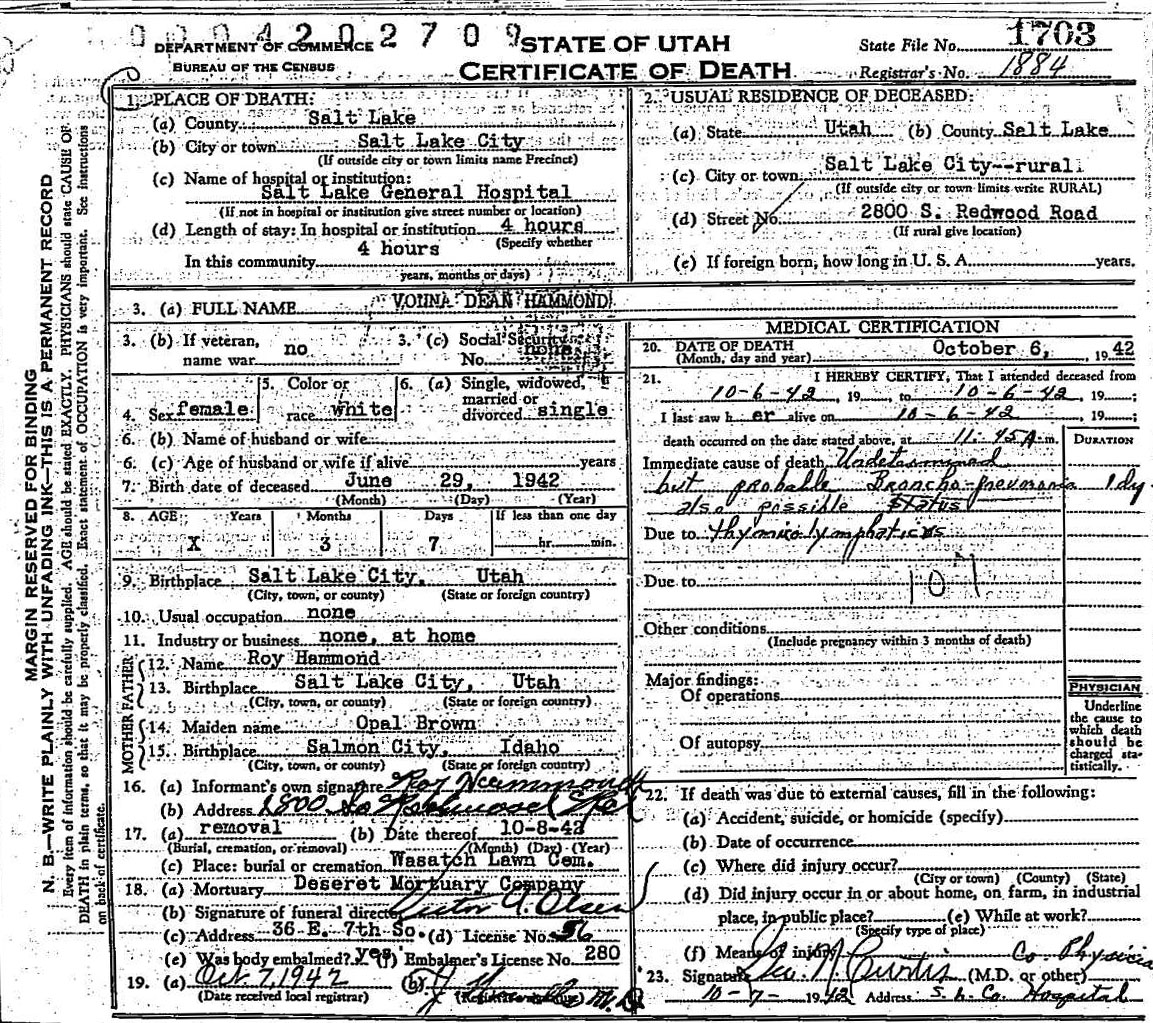 0004202709
DEPARTMENT OF COMMERCE
BUREAU OF THE CENSUS
STATE OF UTAH
CERTIFICATE OF DEATH
State File No. 1703
Registrar's No. 1884
MARGIN RESERVED FOR BINDING
N. B.—WRITE PLAINLY WITH UNFADING INK—THIS IS A PERMANENT RECORD
Every item of information should be carefully supplied. AGE should be stated EXACTLY. PHYSICIANS should state CAUSE OF
DEATH in plain terms, so that it may be properly classified. Exact statement of OCCUPATION is very important. See instructions
on back of certificate.
1. PLACE OF DEATH:
(a) County Salt Lake
(b) City or town Salt Lake City
(If outside city or town limits name Precinct)
(c) Name of hospital or institution:
Salt Lake General Hospital
(If not in hospital or institution give street number or location)
(d) Length of stay: In hospital or institution 4 hours
(Specify whether
In this community 4 hours
years, months or days)
2. USUAL RESIDENCE OF DECEASED:
(a) State Utah (b) County Salt Lake
(c) City or town Salt Lake City--rural
(If outside city or town limits write RURAL)
(d) Street No. 2800 S. Redwood Road
(If rural give location)
(e) If foreign born, how long in U. S. A. years.
3. (a) FULL NAME VONNA DEAN HAMMOND
3. (b) If veteran, name war no
3. (c) Social Security No. none
4. Sex female
5. Color or race white
6. (a) Single, widowed, married or divorced single
6. (b) Name of husband or wife
6. (c) Age of husband or wife if alive years
7. Birth date of deceased June 29, 1942
(Month) (Day) (Year)
8. AGE Years Months Days If less than one day
X 3 7 hr. min.
9. Birthplace Salt Lake City, Utah
(City, town, or county) (State or foreign country)
10. Usual occupation none
11. Industry or business none, at home
FATHER
12. Name Roy Hammond
13. Birthplace Salt Lake City, Utah
(City, town, or county) (State or foreign country)
MOTHER
14. Maiden name Opal Brown
15. Birthplace Salmon City, Idaho
(City, town, or county) (State or foreign country)
16. (a) Informant's own signature Roy Hammond
(b) Address 2800 So Redwood Rd
17. (a) removal (b) Date thereof 10-8-42
(Burial, cremation, or removal) (Month) (Day) (Year)
(c) Place: burial or cremation Wasatch Lawn Cem.
18. (a) Mortuary Deseret Mortuary Company
(b) Signature of funeral director Victor A. Olsen
(c) Address 36 E. 7th So. (d) License No. 56
(e) Was body embalmed? yes (f) Embalmer's License No. 280
19. (a) Oct. 7, 1942 (b) M.D.
(Date received local registrar) (Registrar's signature)
MEDICAL CERTIFICATION
20. DATE OF DEATH October 6, 1942
(Month, day and year)
21. I HEREBY CERTIFY, That I attended deceased from
10-6-42, 19 , to 10-6-42, 19 ;
I last saw h er alive on 10-6-42, 19 ;
death occurred on the date stated above, at 11:45A m.
DURATION
Immediate cause of death Undetermined
but probable Broncho-pneumonia 1 dy
also possible Status
Due to thymico lymphaticus
Due to 107
Other conditions
(Include pregnancy within 3 months of death)
Major findings:
Of operations
Of autopsy
PHYSICIAN
Underline
the cause to
which death
should be
charged sta-
tistically.
22. If death was due to external causes, fill in the following:
(a) Accident, suicide, or homicide (specify)
(b) Date of occurrence
(c) Where did injury occur?
(City or town) (County) (State)
(d) Did injury occur in or about home, on farm, in industrial
place, in public place? (e) While at work?
(Specify type of place)
(f) Means of injury
Co. Physician
23. Signature Geo. N. Curtis (M.D. or other)
10-7-1942 Address S. L. Co. Hospital